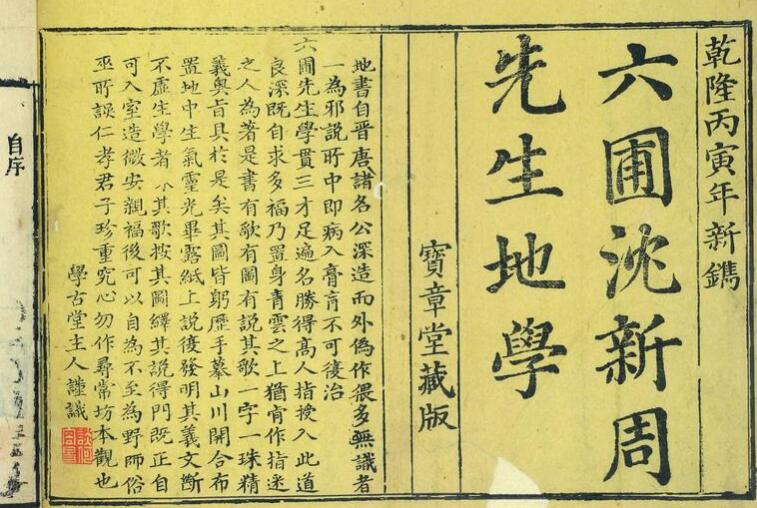 乾隆丙寅年新鐫
六圃沈新周
先生地學
寶章堂藏版
地書自晉唐諸名公深造而外偽作猥多無識者
一為邪說所中即病入膏肓不可復治
六圃先生學貫三才足遍名勝得高人指授入此道
良深既自求多福乃置身青雲之上猶肯作指迷
之人為著是書有歌有圖有說其歌一字一珠精
義奧旨具於是矣其圖皆躬歷手摹山川開合布
置地中生氣靈光畢露紙上說復發明其義文斷
不虛生學者 其歌按其圖繹其說得門既正自
可入室造微安親福後可以自為不至為野師俗
巫所誤仁孝君子珍重究心勿作尋常坊本觀也
學古堂主人謹識
自序